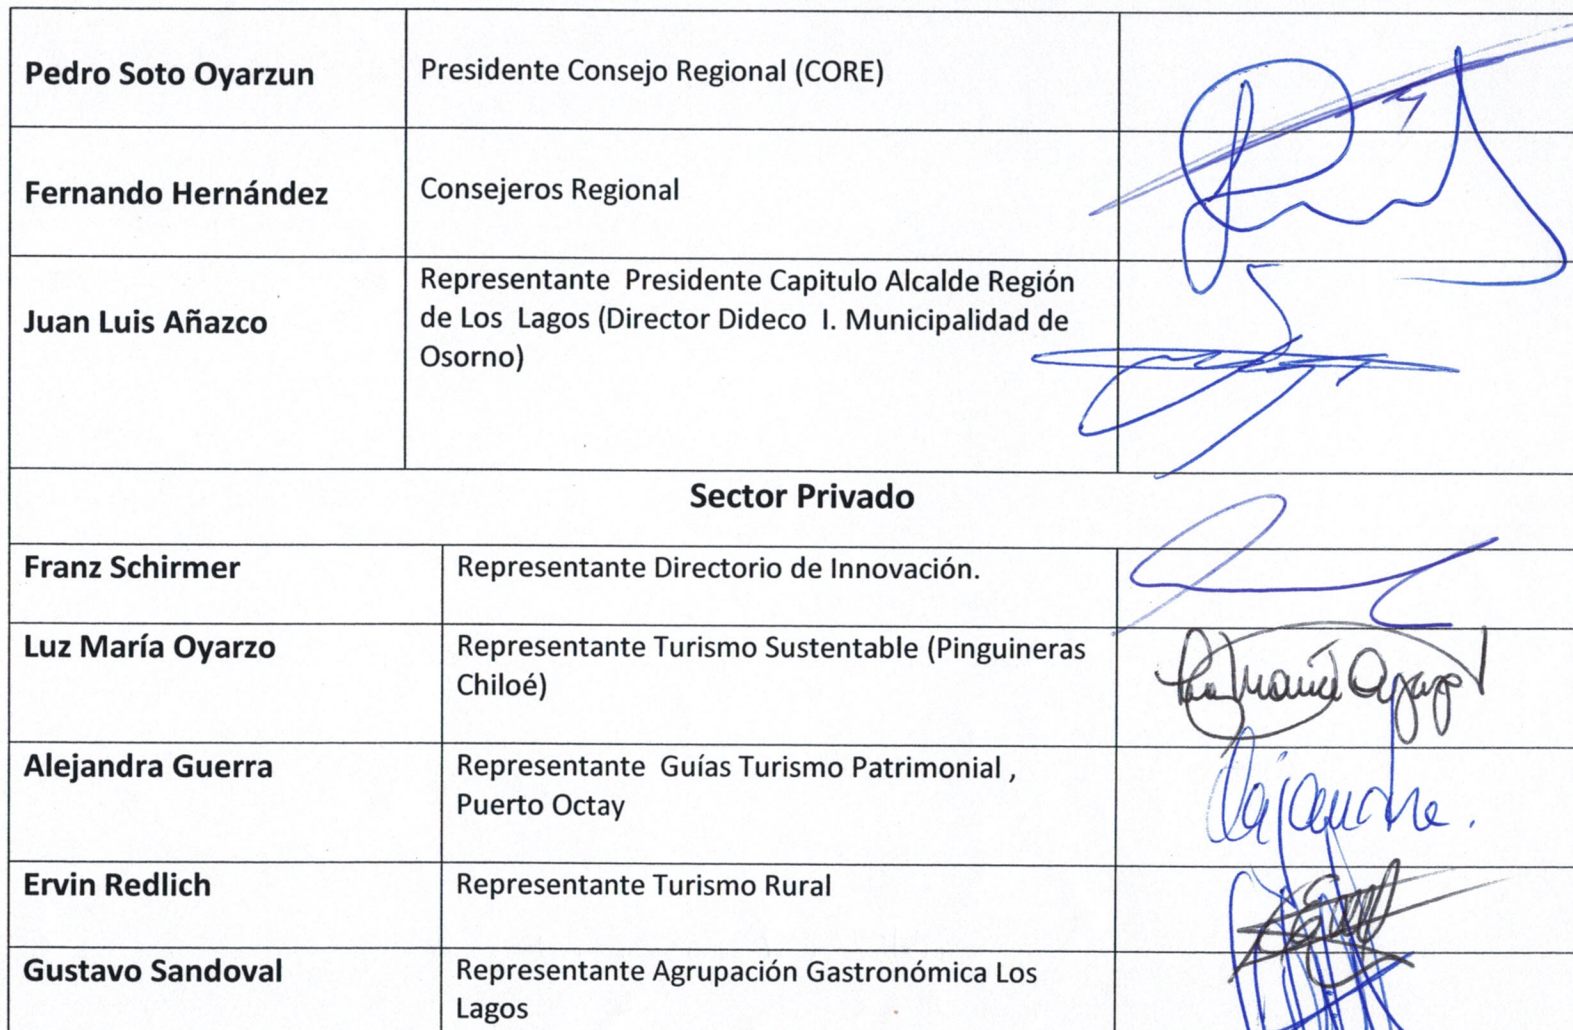 Pedro Soto Oyarzun
Presidente Consejo Regional (CORE)
Fernando Hernández
Consejeros Regional
Juan Luis Añazco
Representante Presidente Capitulo Alcalde Región
de Los Lagos (Director Dideco I. Municipalidad de
Osorno)
Sector Privado
Franz Schirmer
Representante Directorio de Innovación.
Luz María Oyarzo
Representante Turismo Sustentable (Pinguineras
Chiloé)
Alejandra Guerra
Representante Guías Turismo Patrimonial ,
Puerto Octay
Ervin Redlich
Representante Turismo Rural
Gustavo Sandoval
Representante Agrupación Gastronómica Los
Lagos